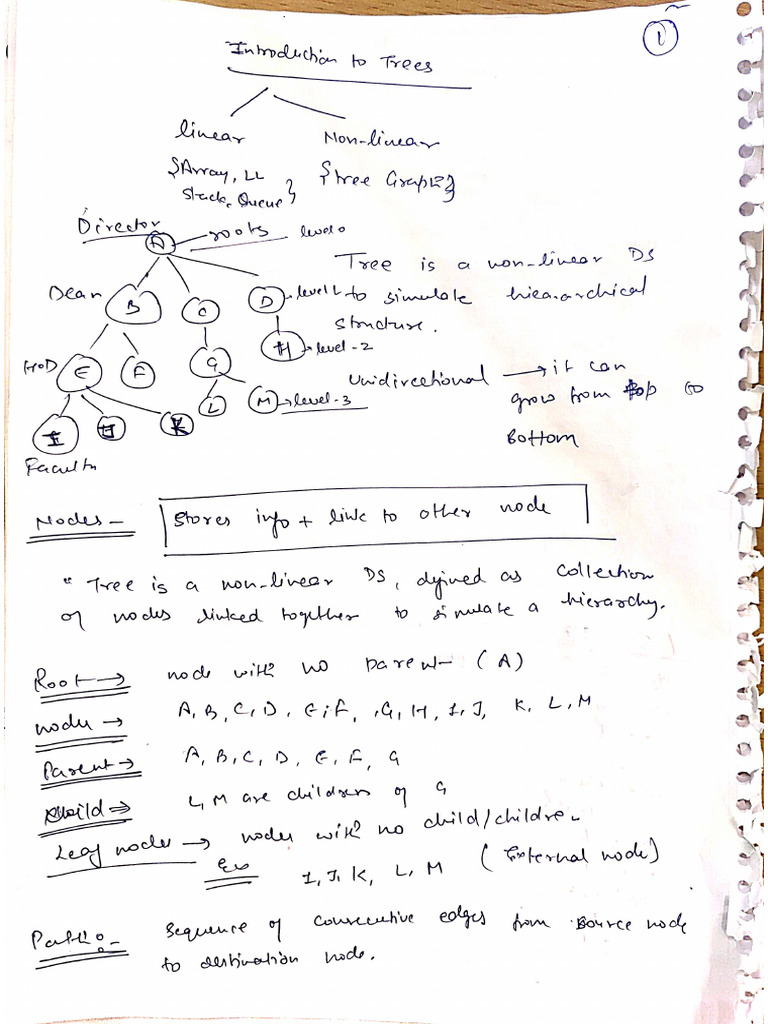 1
Introduction to Trees
linear Non-linear
{Array, LL {tree Graph}
Stack, Queue}
Director
A roots level 0
Tree is a non-linear DS
Dean B C D level 1 to simulate hierarchical
structure.
H level-2
HOD E F G
Unidirectional → it can
L M → level-3 grow from top to
Bottom
I J K
Faculty
Nodes - Stores info + link to other node
" Tree is a non-linear DS, defined as collection
of nodes linked together to simulate a hierarchy.
Root → node with no parent - (A)
nodes → A, B, C, D, E, F, G, H, I, J, K, L, M
Parent → A, B, C, D, E, F, G
Child ⇒ L, M are children of G
Leaf nodes → nodes with no child/children
Ex I, J, K, L, M (External node)
Path:- Sequence of consecutive edges from source node
to destination node.